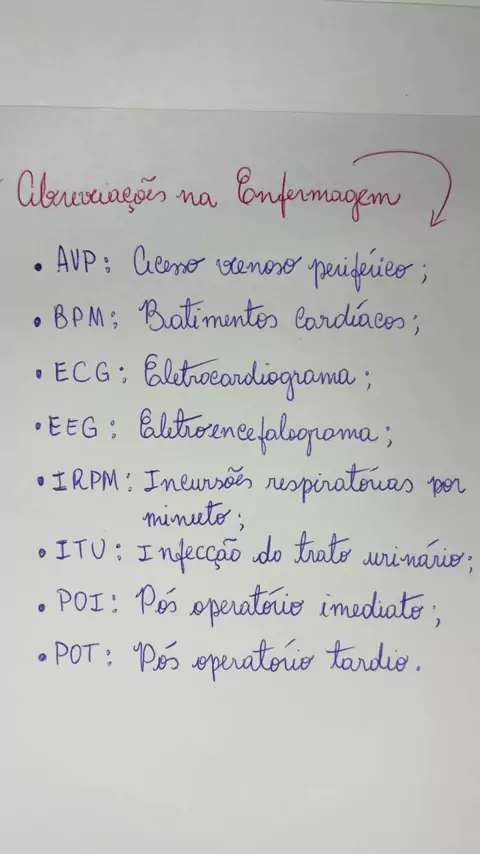 Abreviações na Enfermagem
• AVP: Acesso venoso periférico;
• BPM: Batimentos cardíacos;
• ECG: Eletrocardiograma;
• EEG: Eletroencefalograma;
• IRPM: Incursões respiratórias por
minuto;
• ITU: Infecção do trato urinário;
• POI: Pós operatório imediato;
• POT: Pós operatório tardio.